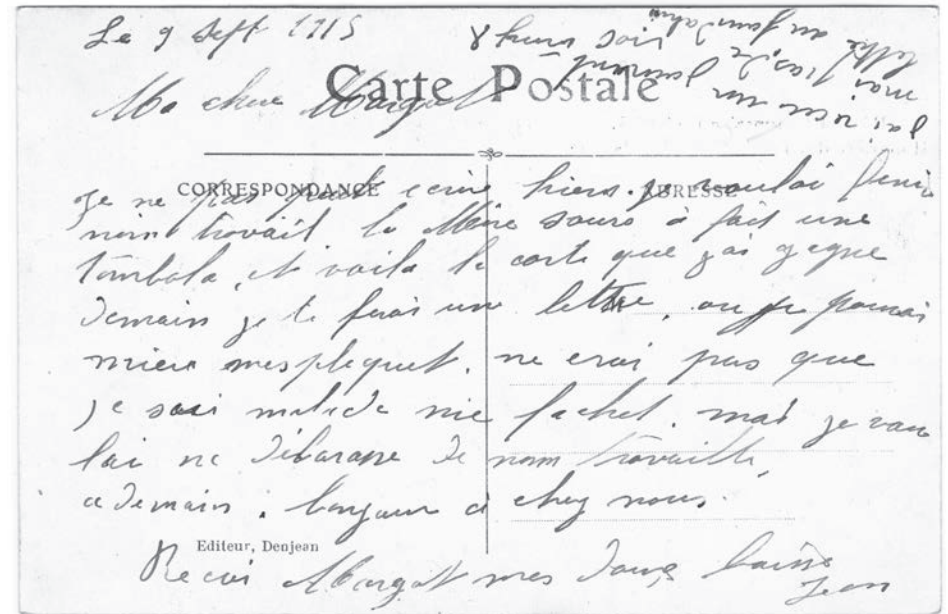 Le 9 Sept 1915
8 heurs soir
Carte Postale
Ma chere Margot
j'ai recu
lettre aujourd'hui
CORRESPONDANCE
ADRESSE
Je ne pas peut ecrire hiers. je voulai finir
mim travail la Mère soure à fait une
tombola, et voila la carte que j'ai gagne
Demain je te ferai une lettre, ou je pourrai
mieu mesplequet. ne crai pas que
je sui malade nie fachet. mai je vou
lai ne débarasse de mom travaille,
a demain. bonjour a chez nous.
Editeur, Denjean
Recoi Margot mes doux baisé
Jean